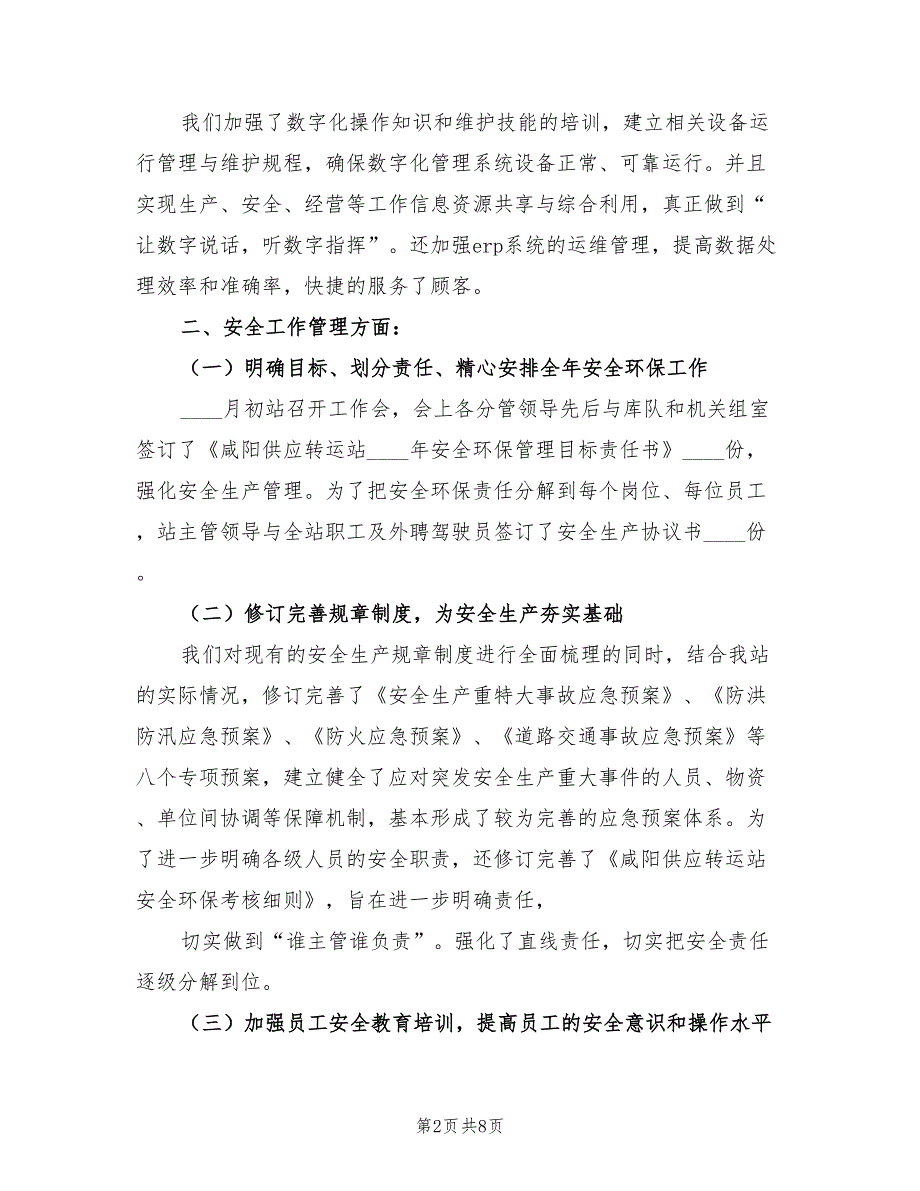 我们加强了数字化操作知识和维护技能的培训，建立相关设备运
行管理与维护规程，确保数字化管理系统设备正常、可靠运行。并且
实现生产、安全、经营等工作信息资源共享与综合利用，真正做到“
让数字说话，听数字指挥”。还加强erp系统的运维管理，提高数据处
理效率和准确率，快捷的服务了顾客。
二、安全工作管理方面：
（一）明确目标、划分责任、精心安排全年安全环保工作
____月初站召开工作会，会上各分管领导先后与库队和机关组室
签订了《咸阳供应转运站____年安全环保管理目标责任书》____份，
强化安全生产管理。为了把安全环保责任分解到每个岗位、每位员工
，站主管领导与全站职工及外聘驾驶员签订了安全生产协议书____份
。
（二）修订完善规章制度，为安全生产夯实基础
我们对现有的安全生产规章制度进行全面梳理的同时，结合我站
的实际情况，修订完善了《安全生产重特大事故应急预案》、《防洪
防汛应急预案》、《防火应急预案》、《道路交通事故应急预案》等
八个专项预案，建立健全了应对突发安全生产重大事件的人员、物资
、单位间协调等保障机制，基本形成了较为完善的应急预案体系。为
了进一步明确各级人员的安全职责，还修订完善了《咸阳供应转运站
安全环保考核细则》，旨在进一步明确责任，
切实做到“谁主管谁负责”。强化了直线责任，切实把安全责任
逐级分解到位。
（三）加强员工安全教育培训，提高员工的安全意识和操作水平
第2页 共8页